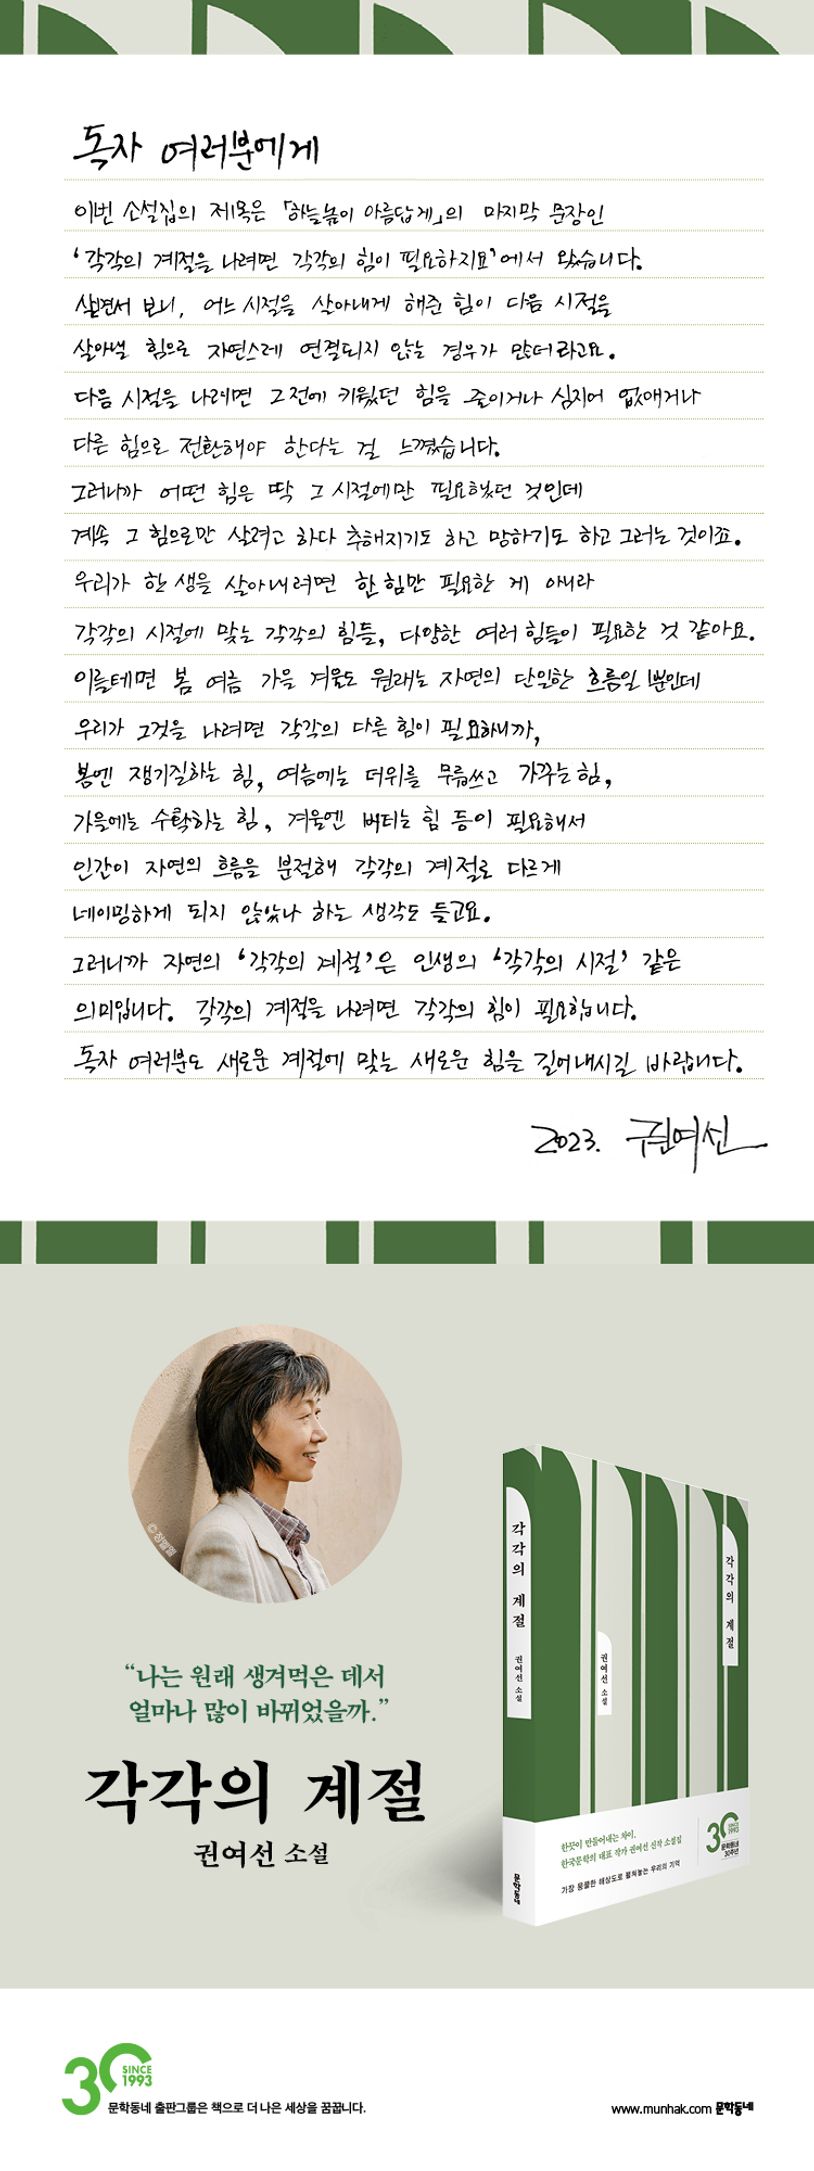 독자 여러분에게
이번 소설집의 제목은 「하늘높이 아름답게」의 마지막 문장인
‘각각의 계절을 나려면 각각의 힘이 필요하지요’에서 왔습니다.
살면서 보니, 어느 시절을 살아내게 해준 힘이 다음 시절을
살아낼 힘으로 자연스레 연결되지 않는 경우가 많더라고요.
다음 시절을 나려면 그전에 키웠던 힘을 줄이거나 심지어 없애거나
다른 힘으로 전환해야 한다는 걸 느꼈습니다.
그러니까 어떤 힘은 딱 그 시절에만 필요했던 것인데
계속 그 힘으로만 살려고 하다 추해지기도 하고 망하기도 하고 그러는 것이죠.
우리가 한 생을 살아내려면 한 힘만 필요한 게 아니라
각각의 시절에 맞는 각각의 힘들, 다양한 여러 힘들이 필요한 것 같아요.
이를테면 봄 여름 가을 겨울도 원래는 자연의 단일한 흐름일 뿐인데
우리가 그것을 나려면 각각의 다른 힘이 필요하니까,
봄엔 쟁기질하는 힘, 여름에는 더위를 무릅쓰고 가꾸는 힘,
가을에는 수확하는 힘, 겨울엔 버티는 힘 등이 필요해서
인간이 자연의 흐름을 분절해 각각의 계절로 다르게
네이밍하게 되지 않았나 하는 생각도 들고요.
그러니까 자연의 ‘각각의 계절’은 인생의 ‘각각의 시절’ 같은
의미입니다. 각각의 계절을 나려면 각각의 힘이 필요합니다.
독자 여러분도 새로운 계절에 맞는 새로운 힘을 길어내시길 바랍니다.
2023. 권여선
©정멜멜
“나는 원래 생겨먹은 데서
얼마나 많이 바뀌었을까.”
각각의 계절
권여선 소설
각각의 계절
권여선 소설
문학동네
각각의 계절
권여선 소설
한끗이 만들어내는 차이.
한국문학의 대표 작가 권여선 신작 소설집
가장 뭉클한 해상도로 펼쳐놓는 우리의 기억
30 SINCE 1993
문학동네
30주년
30 SINCE 1993
문학동네 출판그룹은 책으로 더 나은 세상을 꿈꿉니다.
www.munhak.com 문학동네